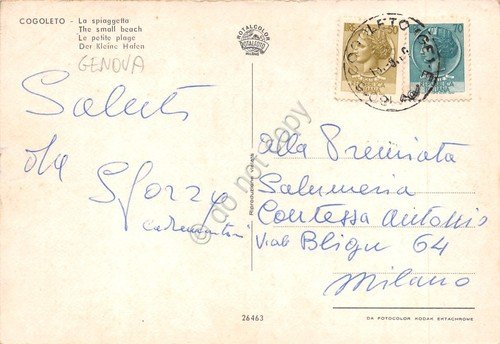 COGOLETO - La spiaggetta
The small beach
Le petite plage
Der Kleine Hafen
GENOVA
ROTALCOLOR
ROTALFOTO
MILANO
Saluti
da Sforza
Alla Premiata
Salumeria
Contessa Antonio
Viale Bligny 64
Milano
Riproduzione
do not copy
26463
DA FOTOCOLOR KODAK EKTACHROME